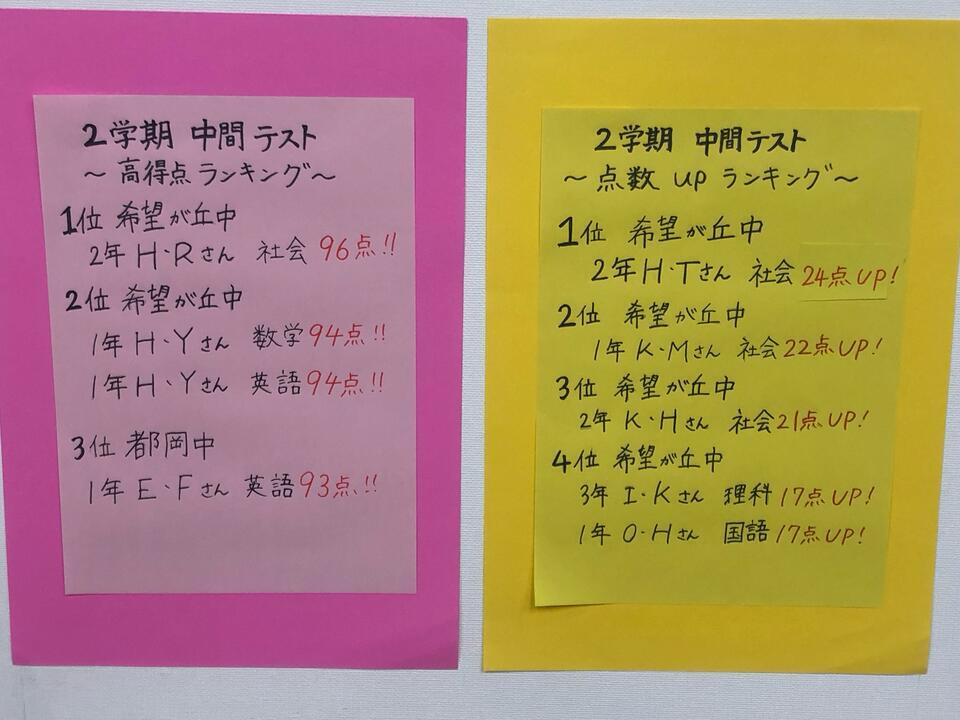 2学期 中間テスト
～高得点ランキング～
1位 希望が丘中
2年 H・Rさん 社会 96点!!
2位 希望が丘中
1年 H・Yさん 数学94点!!
1年 H・Yさん 英語94点!!
3位 都岡中
1年 E・Fさん 英語93点!!
2学期 中間テスト
～点数 UP ランキング～
1位 希望が丘中
2年 H・Tさん 社会 24点UP!
2位 希望が丘中
1年 K・Mさん 社会22点UP!
3位 希望が丘中
2年 K・Hさん 社会21点UP!
4位 希望が丘中
3年 I・Kさん 理科 17点UP!
1年 O・Hさん 国語 17点UP!